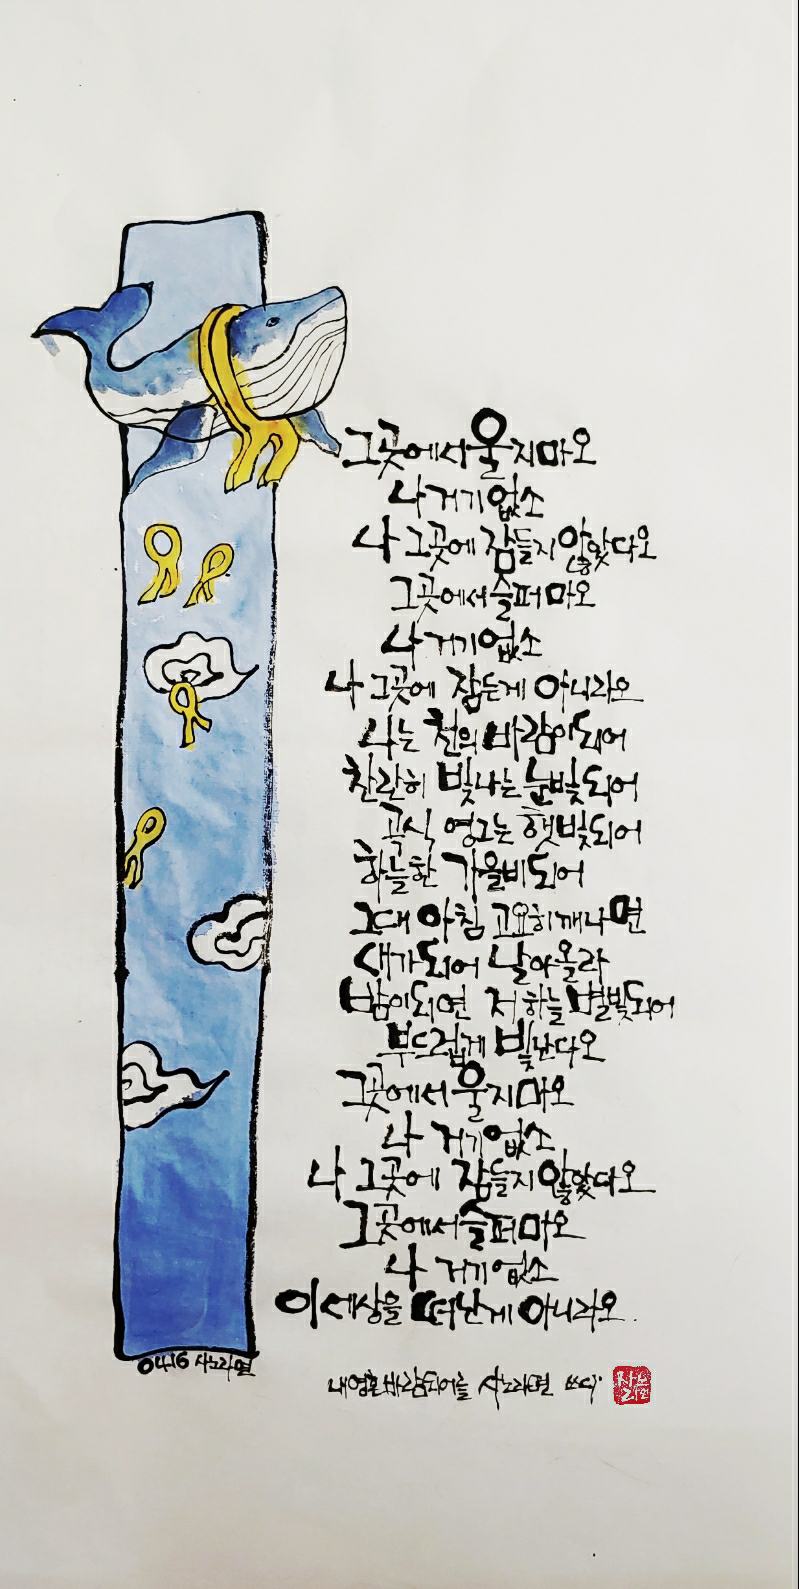 그곳에서 울지마오
나 거기 없소
나 그곳에 잠들지 않았다오
그곳에서 슬퍼마오
나 거기 없소
나 그곳에 잠든게 아니라오
나는 천의 바람이 되어
찬란히 빛나는 눈빛되어
곡식 영그는 햇빛되어
하늘한 가을비되어
그대 아침 고요히 깨나면
새가되어 날아올라
밤이되면 저 하늘 별빛되어
부드럽게 빛난다오
그곳에서 울지마오
나 거기 없소
나 그곳에 잠들지 않았다오
그곳에서 슬퍼마오
나 거기 없소
이 세상을 떠난게 아니라오.
0416 사노라면
내영혼바람되어를 사노라면 쓰다
사노라면